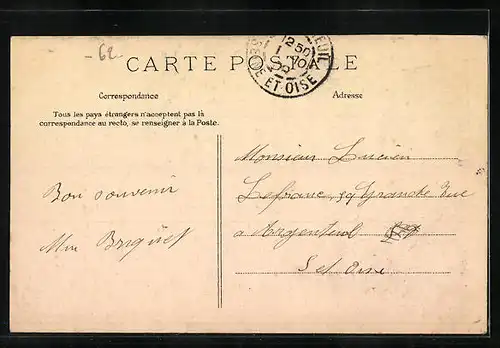 - 62
CARTE POSTALE
2 50
ET OISE
Correspondance
Adresse
Tous les pays étrangers n'acceptent pas la
correspondance au recto, se renseigner à la Poste.
Monsieur Lucien
Lefranc 59 Grande Rue
a Argenteuil
S et Oise
Bon souvenir
Mme Briquet